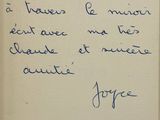 à travers le miroir
écrit avec ma très
chaude et sincère
amitié
Joyce